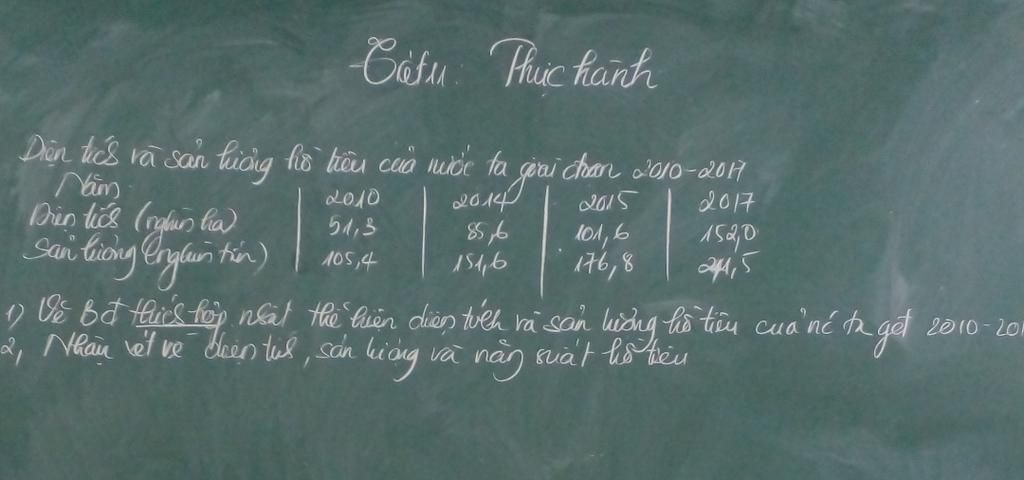 Tiết 11: Thực hành
Diện tích và sản lượng hồ tiêu của nước ta giai đoạn 2010-2017
Năm 2010 2014 2015 2017
Diện tích (nghìn ha) 51,3 85,6 101,6 152,0
Sản lượng (nghìn tấn) 105,4 151,6 176,8 241,5
1) Vẽ BĐ thích hợp nhất thể hiện diện tích và sản lượng hồ tiêu của nc ta gđ 2010-201
2, Nhận xét về diện tích, sản lượng và năng suất hồ tiêu